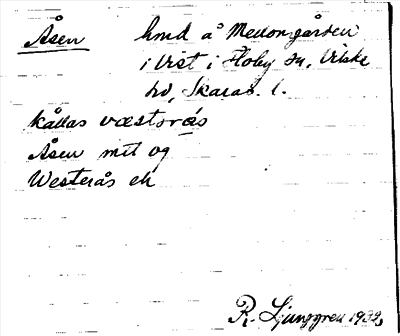 Åsen hmd å Mellomgården
i Vist i Floby sn, Vilske
hd, Skarab. l.
kallas væstərås
Åsen mtl og
Westerås ek
R. Ljunggren 1932